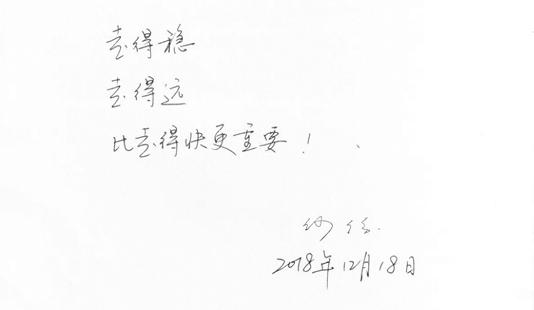 走得稳
走得远
比走得快更重要！
2018年12月18日